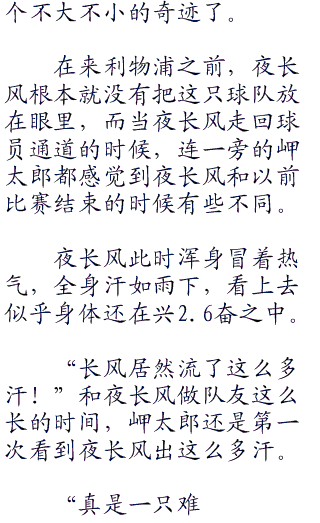 个不大不小的奇迹了。
在来利物浦之前，夜长
风根本就没有把这只球队放
在眼里，而当夜长风走回球
员通道的时候，连一旁的岬
太郎都感觉到夜长风和以前
比赛结束的时候有些不同。
夜长风此时浑身冒着热
气，全身汗如雨下，看上去
似乎身体还在兴2.6奋之中。
“长风居然流了这么多
汗！”和夜长风做队友这么
长的时间，岬太郎还是第一
次看到夜长风出这么多汗。
“真是一只难